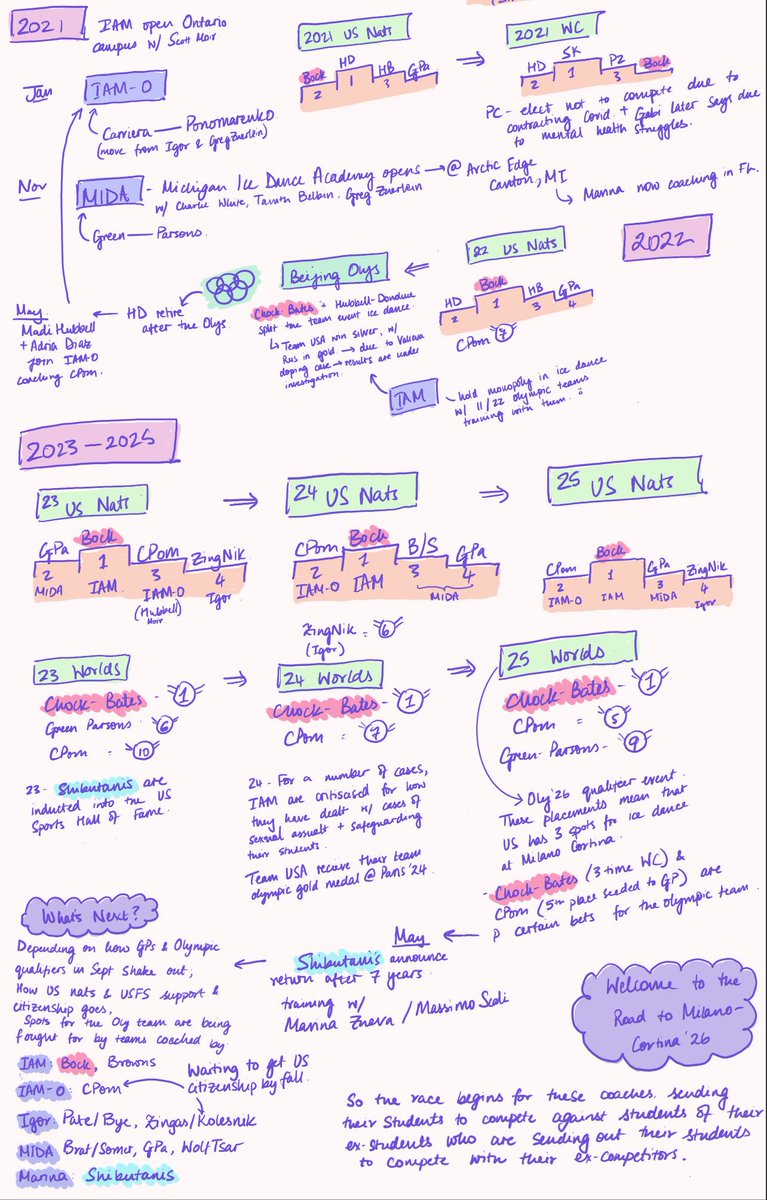 2021
IAM open Ontario
campus w/ Scott Moir
2021 US Nats
Bock
2
HD
1
HB
3
GPa
4
⇒
2021 WC
HD
2
SK
1
PZ
3
Bock
Jan
IAM-O
Carriera — Ponomarenko
(move from Igor & Greg Zuerlein)
PC - elect not to compete due to
contracting Covid. + Gabi later says due
to mental health struggles.
Nov
MIDA
- Michigan Ice Dance Academy opens → @ Arctic Edge
w/ Charlie White, Tanith Belbin, Greg Zuerlein
Canton, MI
Marina now coaching in FL.
Green — Parsons.
2022
22 US Nats
HD
2
Bock
1
HB
3
GPa
4
CPom 7
⇐
Beijing Olys
Chock-Bates + Hubbell-Donohue
split the team event ice dance.
↳ Team USA win silver, w/
Rus in gold → due to Valieva
doping case → results are under
investigation.
HD retire
after the Olys
May
Madi Hubbell
+ Adria Diaz
join IAM-O
coaching CPom.
IAM
hold monopoly in ice dance
w/ 11/22 olympic teams
training with them.
2023-2025
23 US Nats
GPa
2
MIDA
Bock
1
IAM
CPom
3
IAM-O
(Hubbell)
Moir
ZingNik
4
Igor
⇒
24 US Nats
CPom
2
IAM-O
Bock
1
IAM
B/S
3
GPa
4
MIDA
ZingNik = 6
(Igor)
⇒
25 US Nats
CPom
2
IAM-O
Bock
1
IAM
GPa
3
MIDA
ZingNik
4
Igor
23 Worlds
Chock-Bates - 1
Green Parsons : 6
CPom = 10
23 - Shibutanis are
inducted into the US
Sports Hall of Fame.
⇒
24 Worlds
Chock-Bates - 1
CPom = 7
24 - For a number of cases,
IAM are criticised for how
they have dealt w/ cases of
sexual assault + safeguarding
their students.
Team USA recieve their team
olympic gold medal @ Paris '24
⇒
25 Worlds
Chock-Bates - 1
CPom = 5
Green-Parsons - 9
Oly '26 qualifier event.
These placements mean that
US has 3 spots for ice dance
at Milano Cortina.
- Chock-Bates (3 time WC) &
CPom (5th place seeded to GP) are
p certain bets for the olympic team.
May
Shibutanis announce
return after 7 years.
training w/
Marina Zueva / Massimo Scali
What's Next?
Depending on how GPs & Olympic
qualifiers in Sept shake out,
How US nats & USFS support &
citizenship goes,
Spots for the Oly team are being
fought for by teams coached by
IAM: Bock, Browns
IAM-O: CPom
Waiting to get US
citizenship by fall.
Igor: Pate/Bye, Zingas/Kolesnik
MIDA Brat/Somer, GPa, WolfTsar
Marina: Shibutanis
Welcome to the
Road to Milano-
Cortina '26
So the race begins for these coaches, sending
their students to compete against students of their
ex-students who are sending out their students
to compete with their ex-competitors.